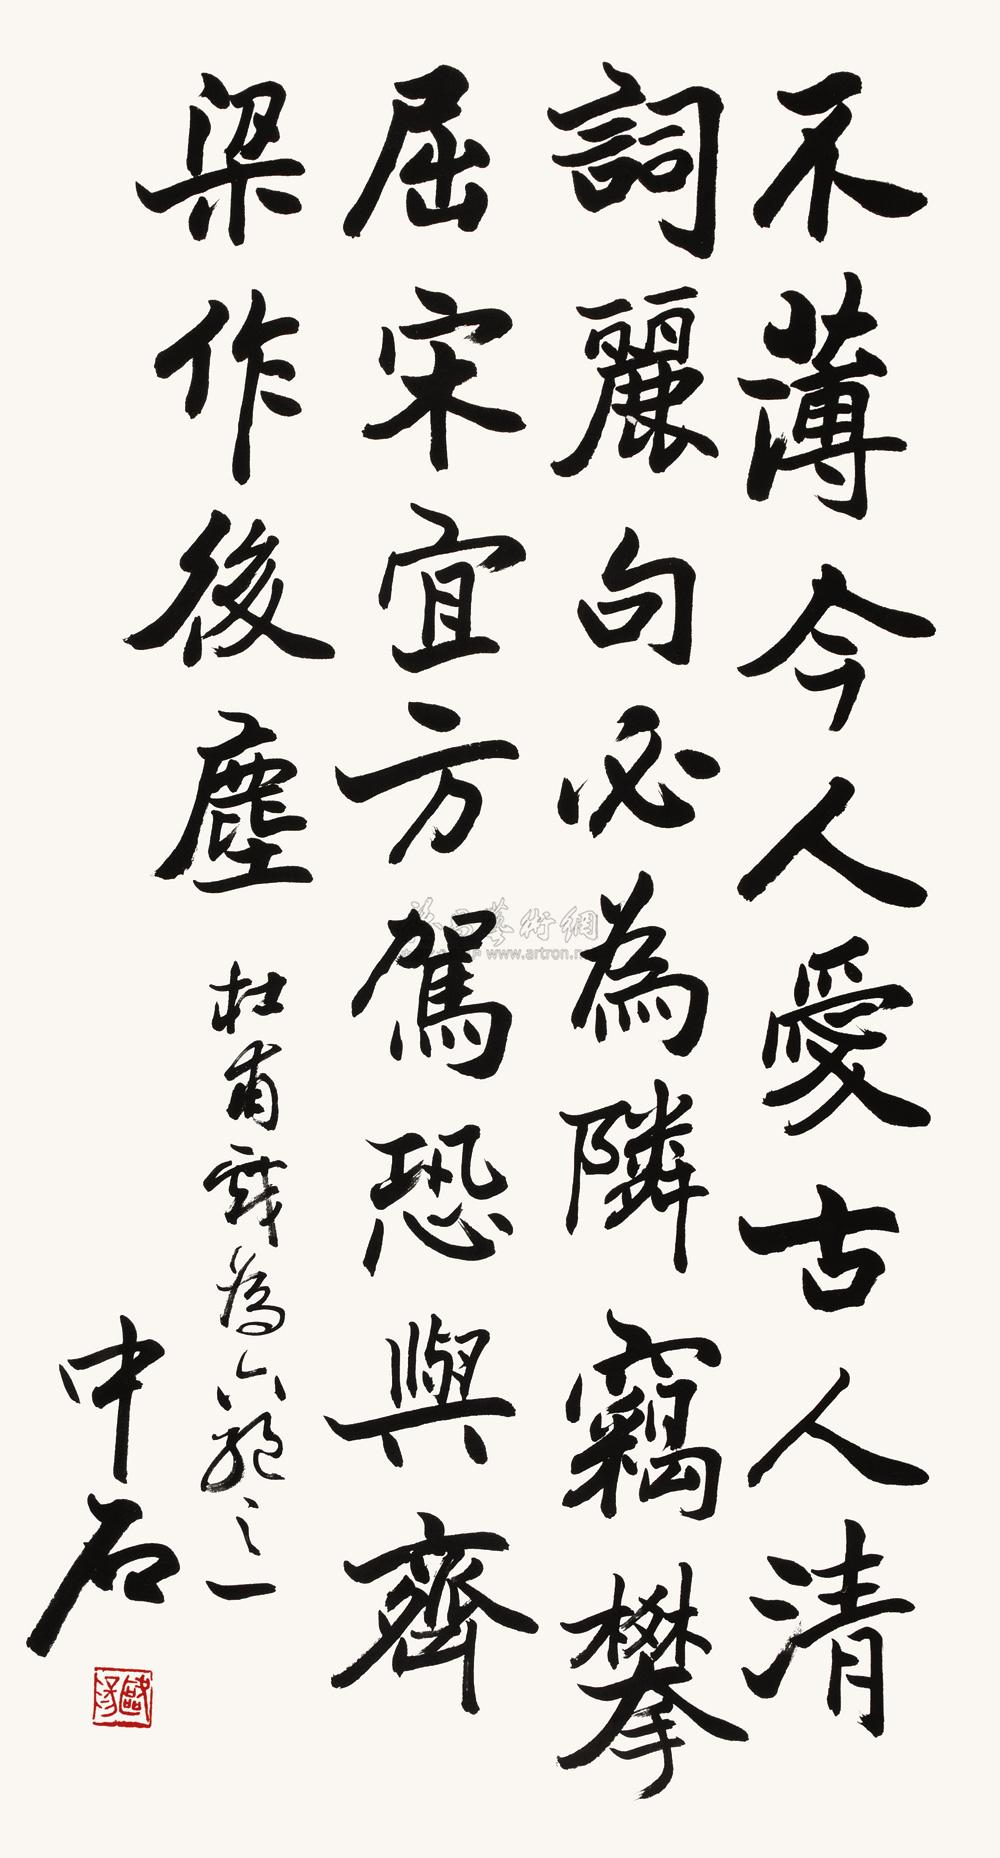 不薄今人愛古人清
詞麗句必為隣竊攀
屈宋宜方駕恐與齊
梁作後塵
杜甫戲為六絕之一
中石
www.artron.n